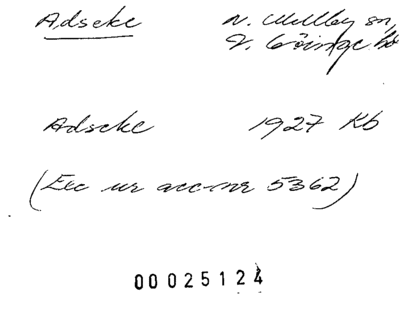 Adseke N. Mellby sn,
V. Göinge hd
Adseke 1927 Kb
(Exc ur acc-nr 5362)
00025124